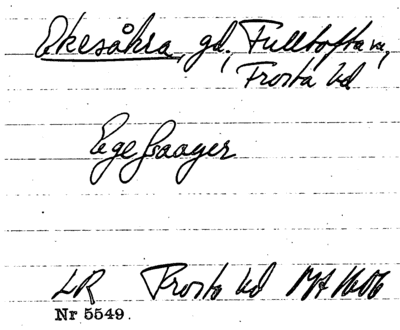 Ekesåkra, gd, Fulltofta sn,
Frosta hd
Egesaager
LR Frosta hd MA 1606
Nr 5549.